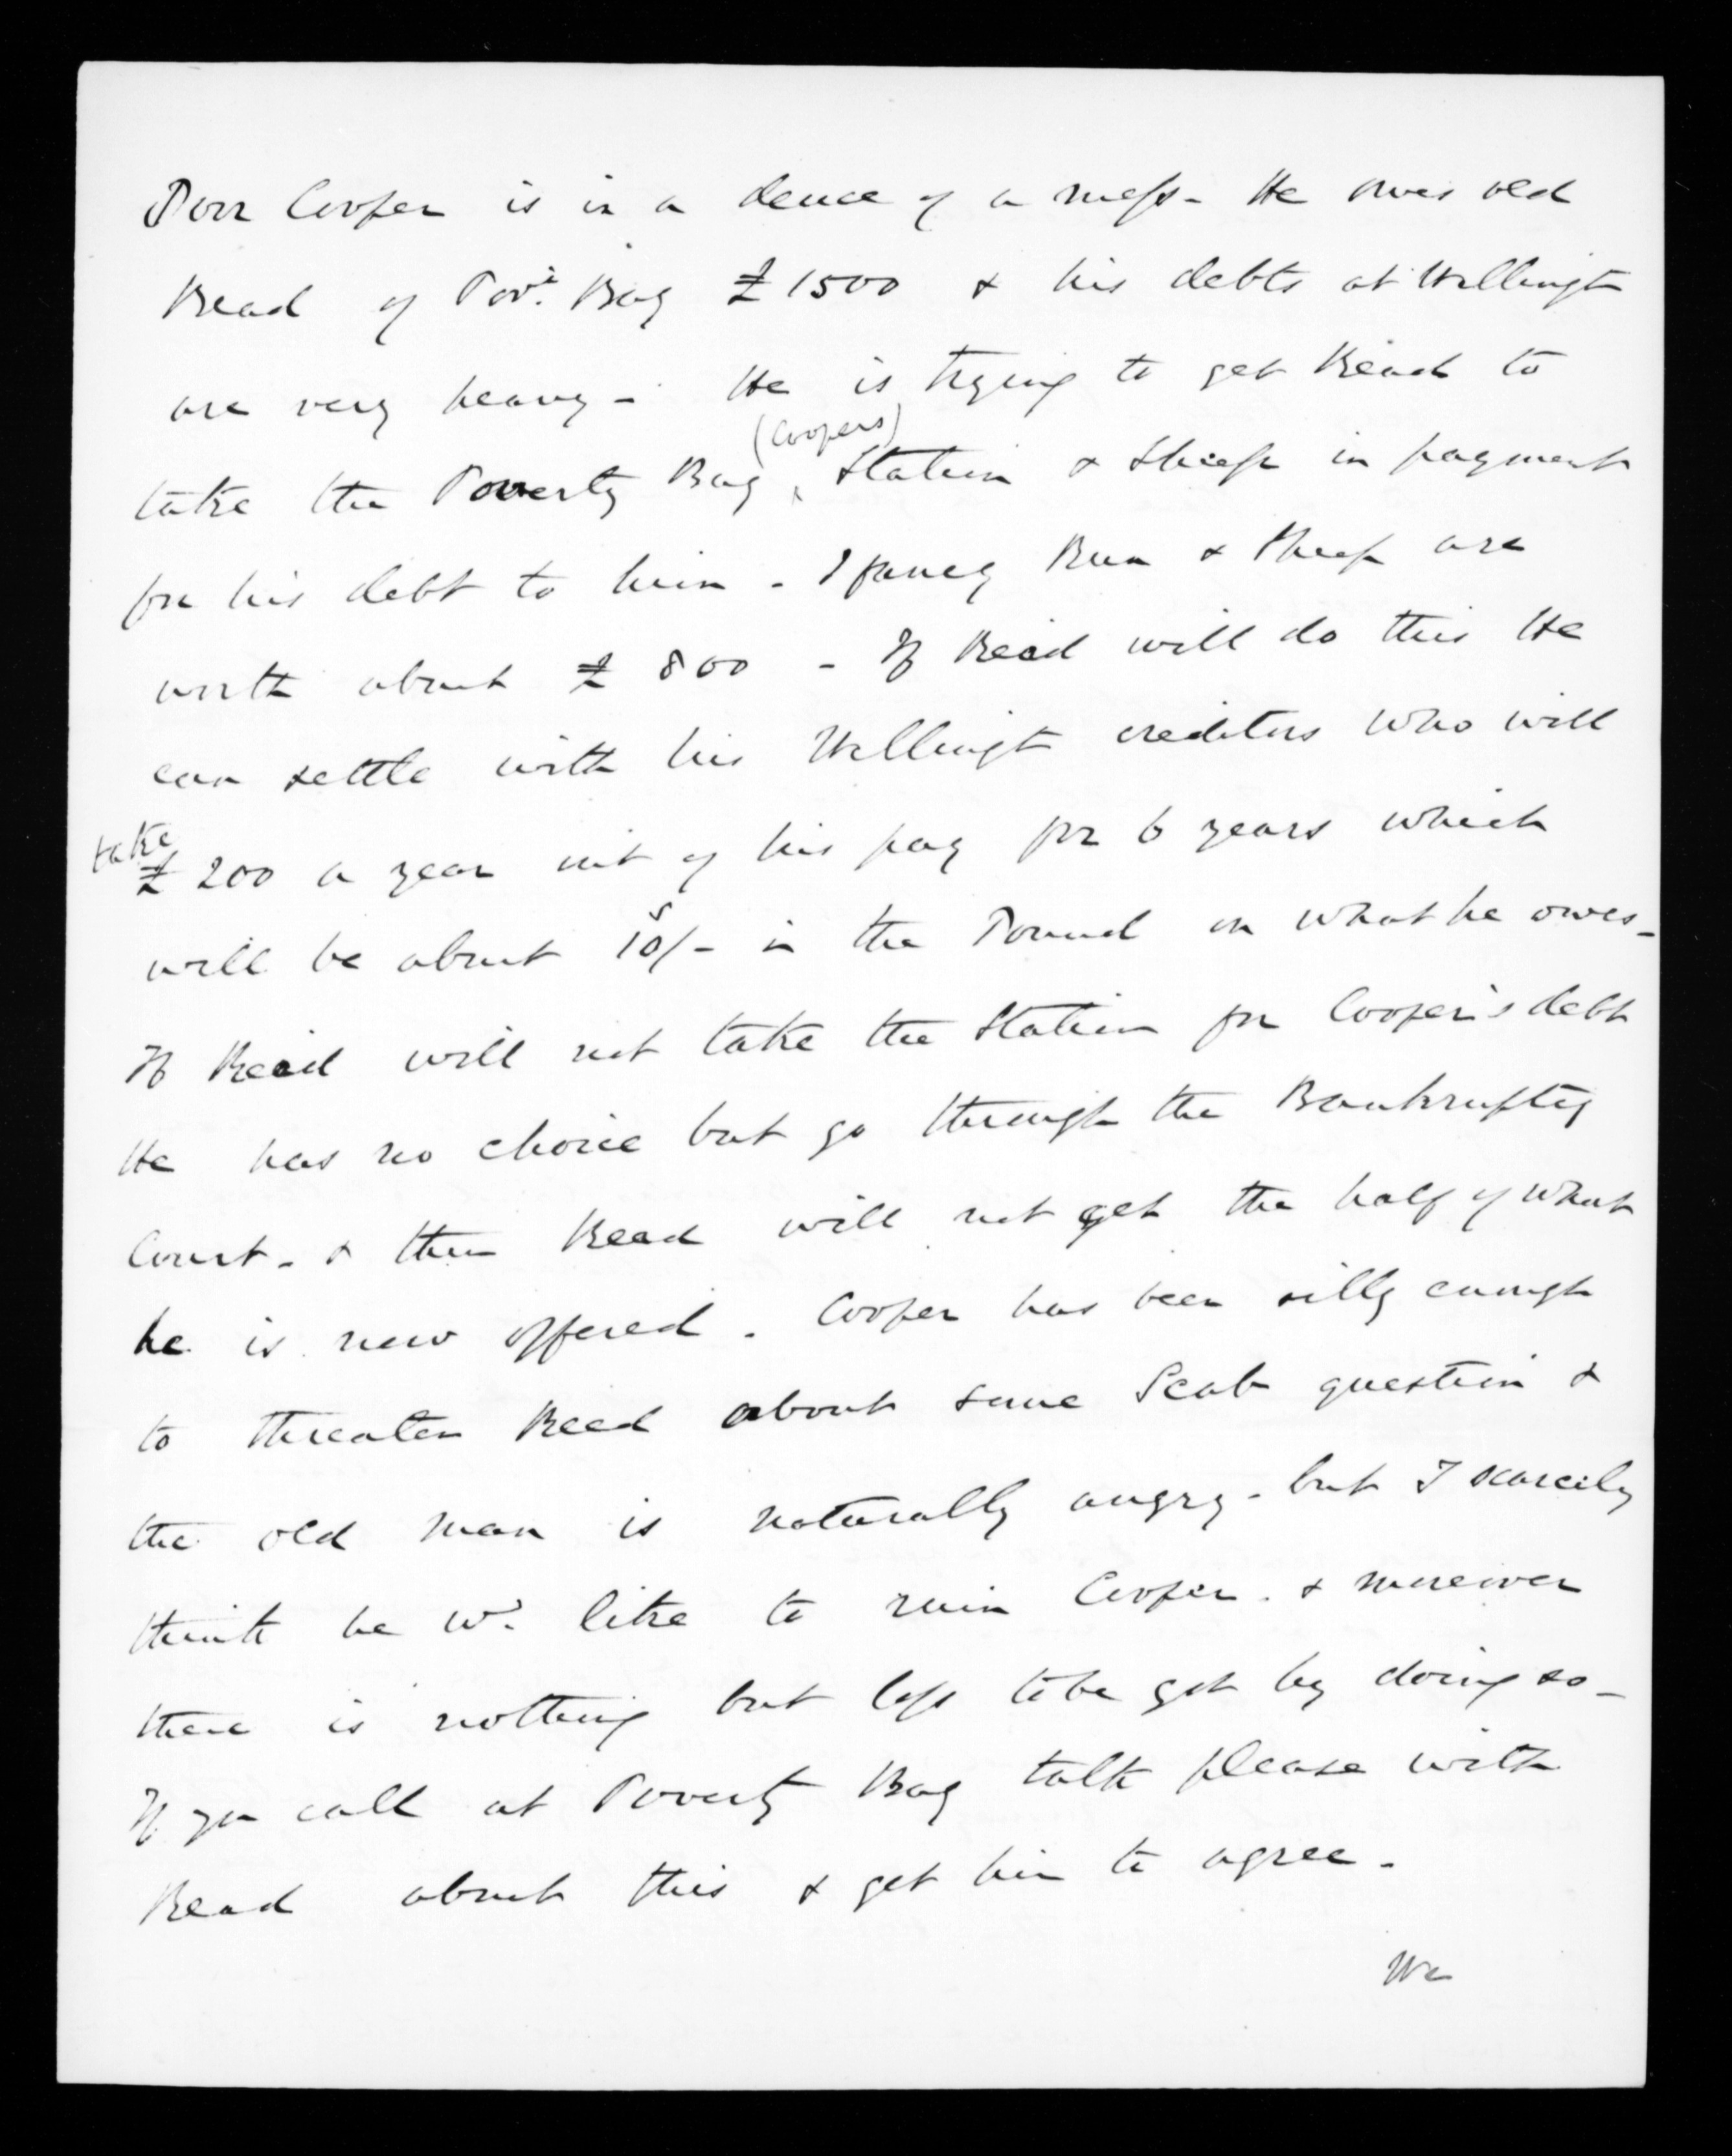 Poor Cooper is in a deuce of a mess - He owes old
Read of Pov.y Bay £1500 & his debts at Wellingt
are very heavy - He is trying to get Read to
take the Poverty Bay (Coopers) Station & Sheep in payment
for his debt to him - I fancy Run & Sheep are
worth about £800 - If Read will do this He
can settle with his Wellingt creditors who will
take £200 a year out of his pay for 6 years which
will be about 10s/- in the Pound on what he owes -
If Read will not take the Station for Cooper's debt
He has no choice but go through the Bankruptcy
Court - & then Read will not get the half of what
he is now offered. Cooper has been silly enough
to threaten Read about some Scab question &
the old man is naturally angry - but I scarcely
think he wd. like to ruin Cooper. & moreover
there is nothing but loss to be got by doing so -
If you call at Poverty Bay talk please with
Read about this & get him to agree -
We